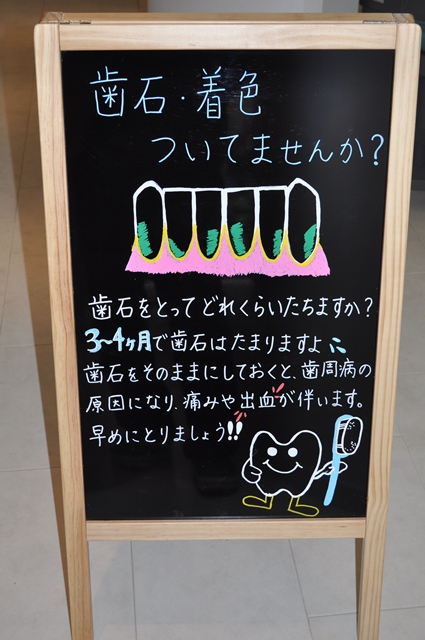 歯石・着色
ついてませんか?
歯石をとってどれくらいたちますか?
3~4ヶ月で歯石はたまりますよ
歯石をそのままにしておくと、歯周病の
原因になり、痛みや出血が伴います。
早めにとりましょう!!